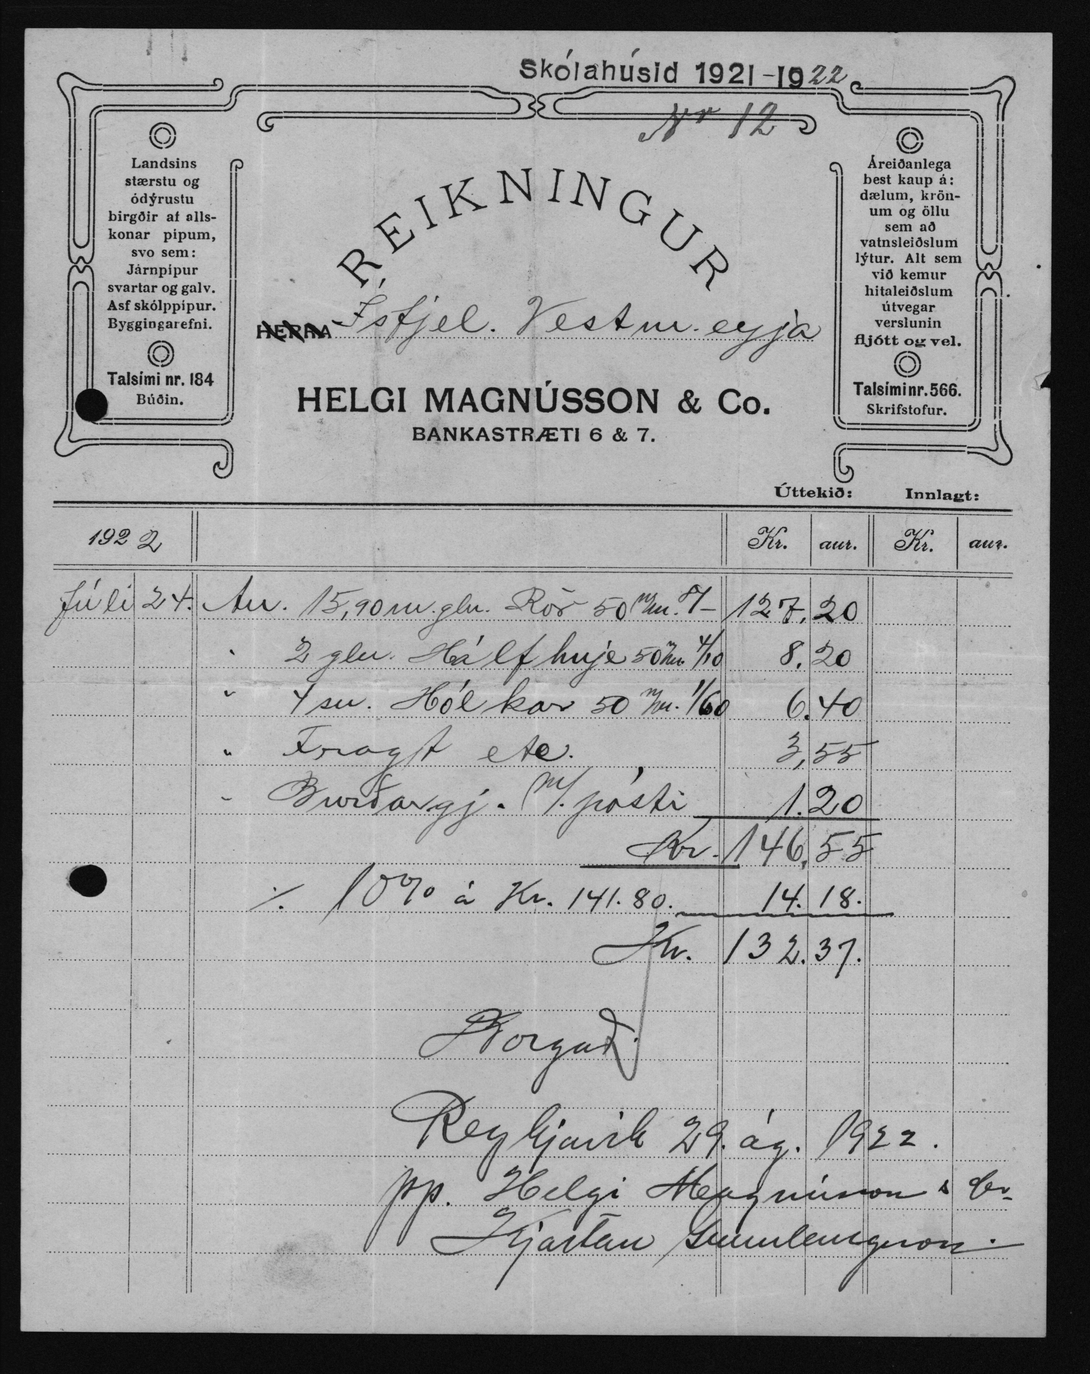 Skólahúsid 1921-1922
Nr 12
Landsins
stærstu og
ódýrustu
birgðir af alls-
konar pipum,
svo sem:
Járnpipur
svartar og galv.
Asf skólppipur.
Byggingarefni.
Talsími nr. 184
Búðin.
REIKNINGUR
HERRA Ísfjel. Vestm.eyja
HELGI MAGNÚSSON & Co.
BANKASTRÆTI 6 & 7.
Áreiðanlega
best kaup á:
dælum, krön-
um og öllu
sem að
vatnsleiðslum
lýtur. Alt sem
við kemur
hitaleiðslum
útvegar
verslunin
fljótt og vel.
Talsími nr. 566.
Skrifstofur.
Úttekið: Innlagt:
1922 Kr. aur. Kr. aur.
Júli 24. An. 15,90 m. glv. Rör 50 m/m. 8/- 127.20
" 2 glv. Hálfhnje 50 m/m 4/10 8.20
" 4 sv. Hólkar 50 m/m. 1/60 6.40
" Fragt etc. 3,55
" Burðargj. m/. pósti 1.20
Kr. 146,55
./. 10% á Kr. 141.80. 14.18.
Kr. 132.37.
Borgað.
Reykjavik 29. ág. 1922.
pp. Helgi Magnússon & Co
Kjartan Gunnlaugsson.